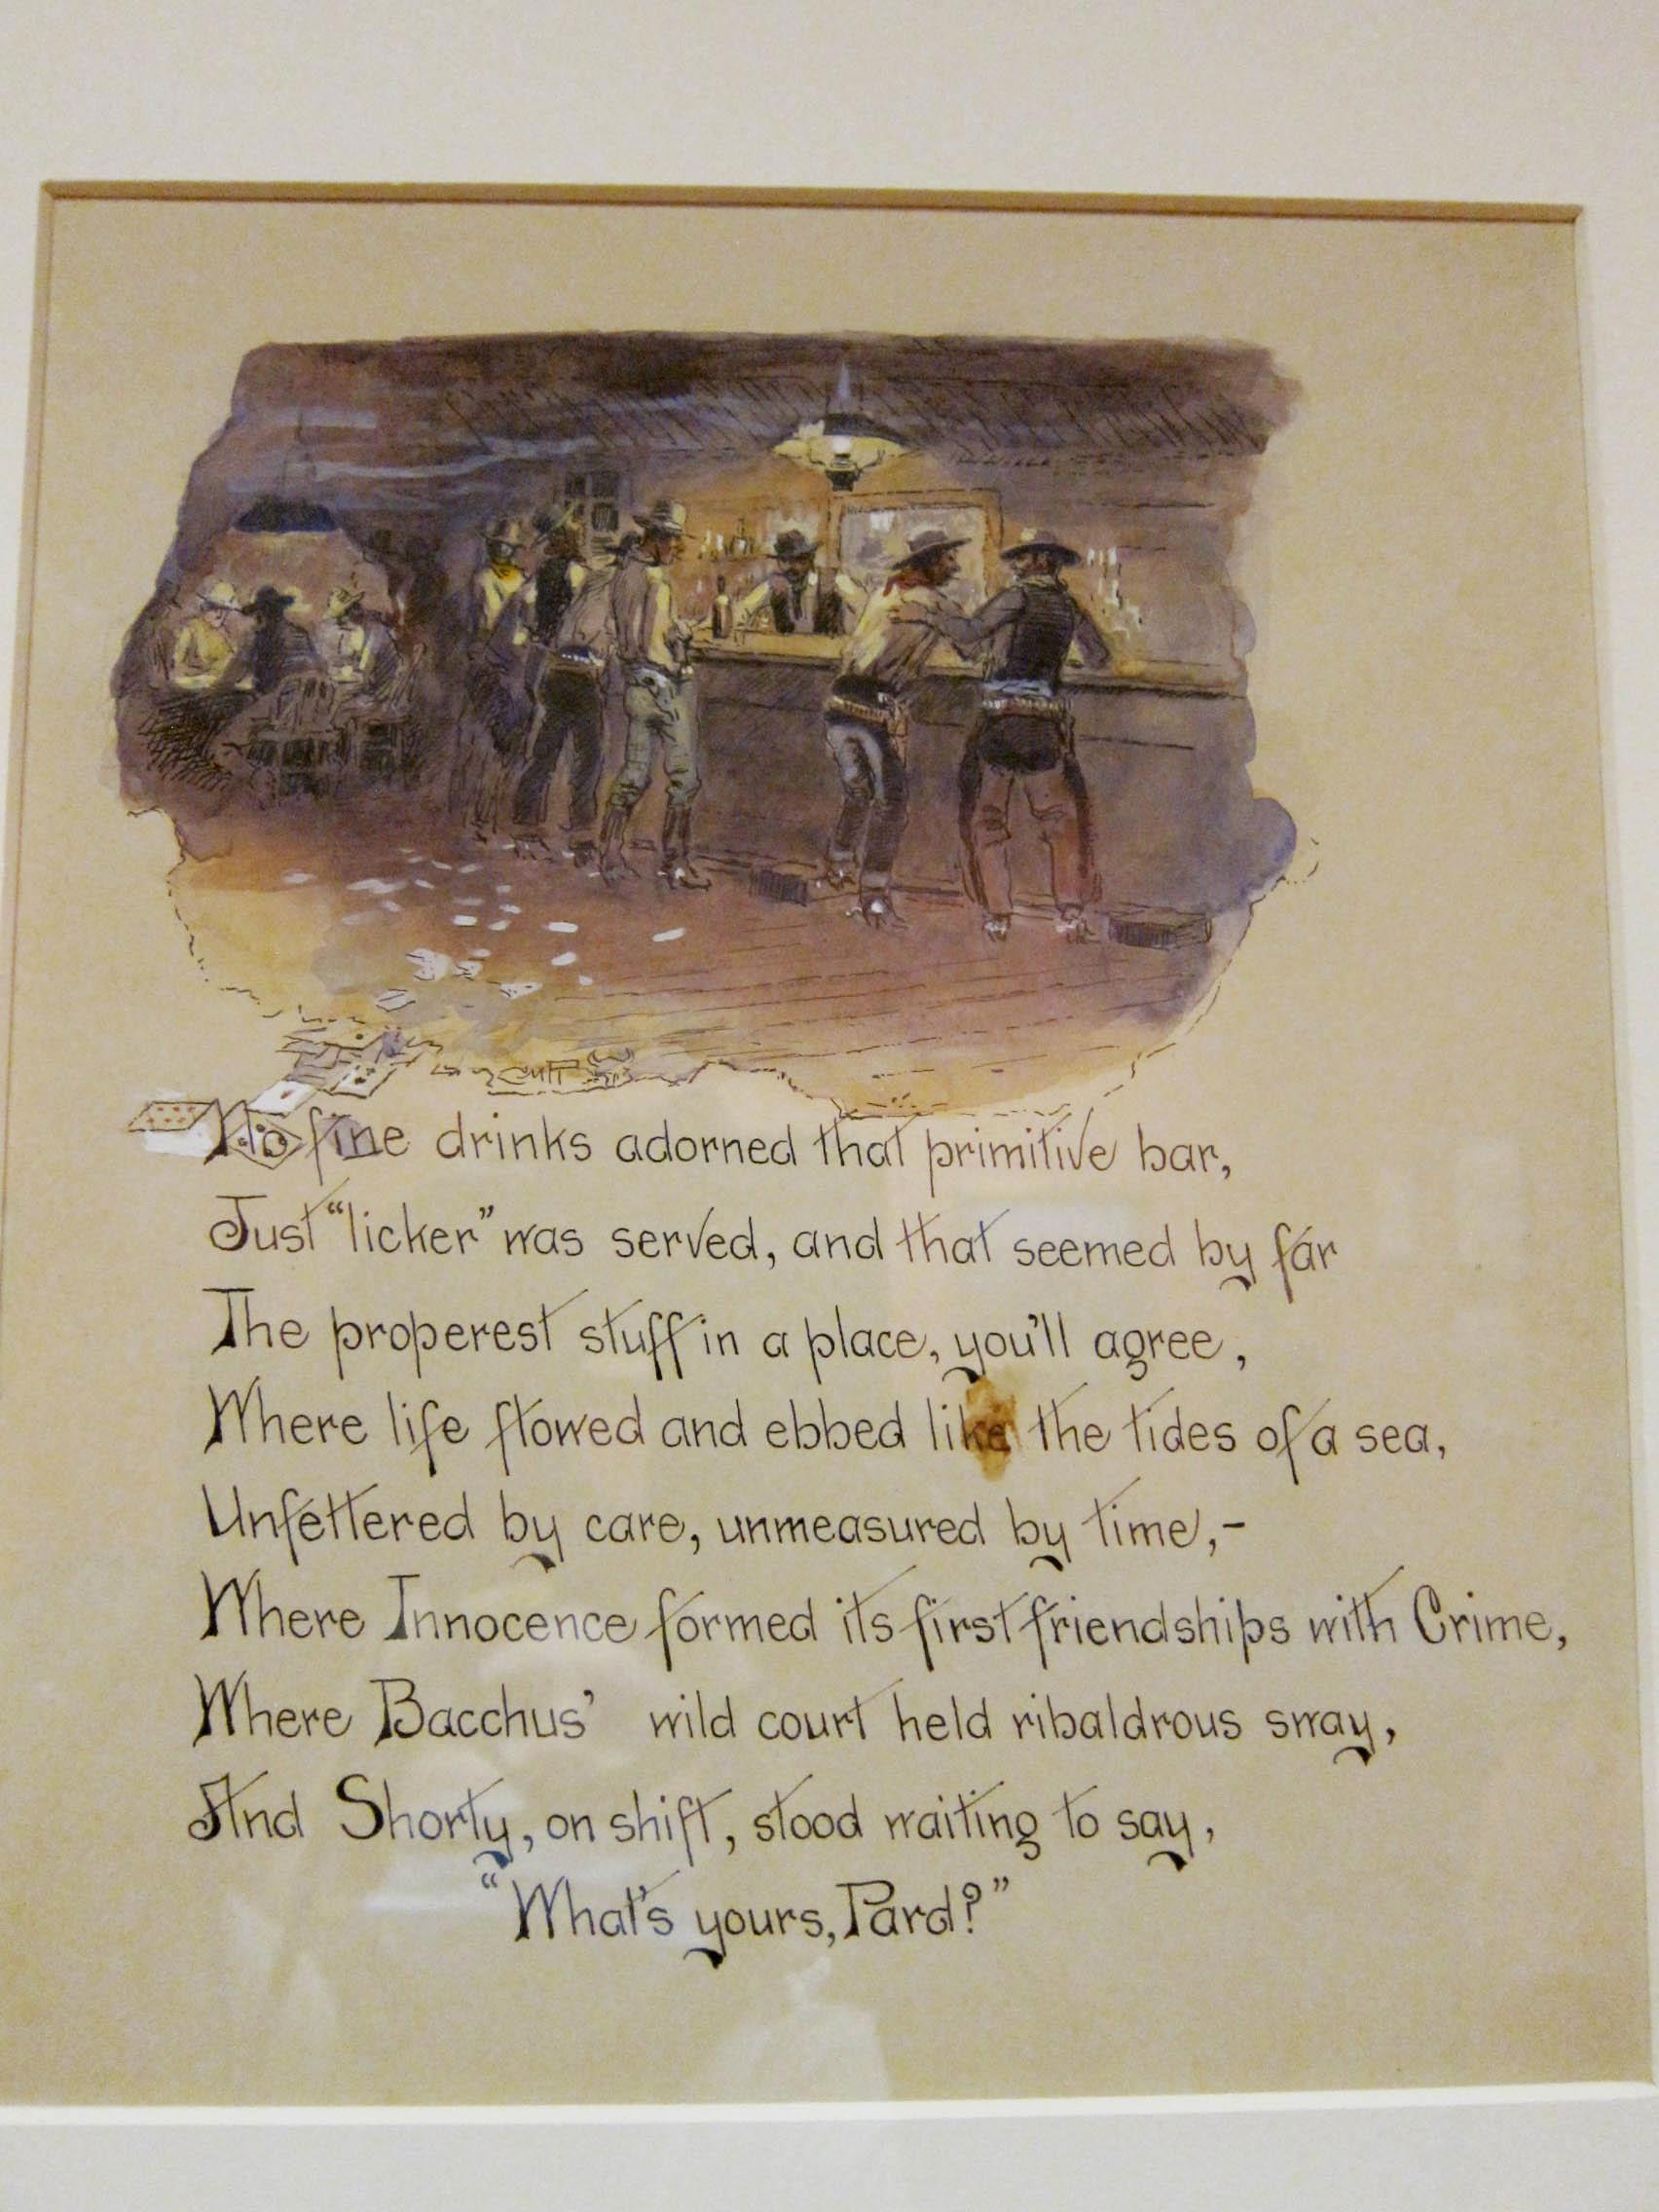 No fine drinks adorned that primitive bar,
Just "licker" was served, and that seemed by far
The properest stuff in a place, you'll agree,
Where life flowed and ebbed like the tides of a sea,
Unfettered by care, unmeasured by time,-
Where Innocence formed its first friendships with Crime,
Where Bacchus' wild court held ribaldrous sway,
And Shorty, on shift, stood waiting to say,
"What's yours, Pard?"